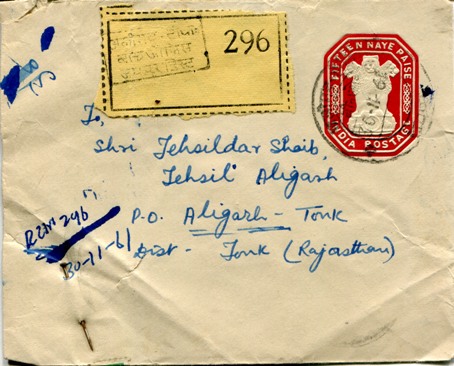 296
FIFTEEN NAYE PAISE
INDIA POSTAGE
To,
Shri Tehsildar Sahib,
Tehsil Aligarh
P.O. Aligarh - Tonk
Dist - Tonk (Rajasthan)
296
30-11-61